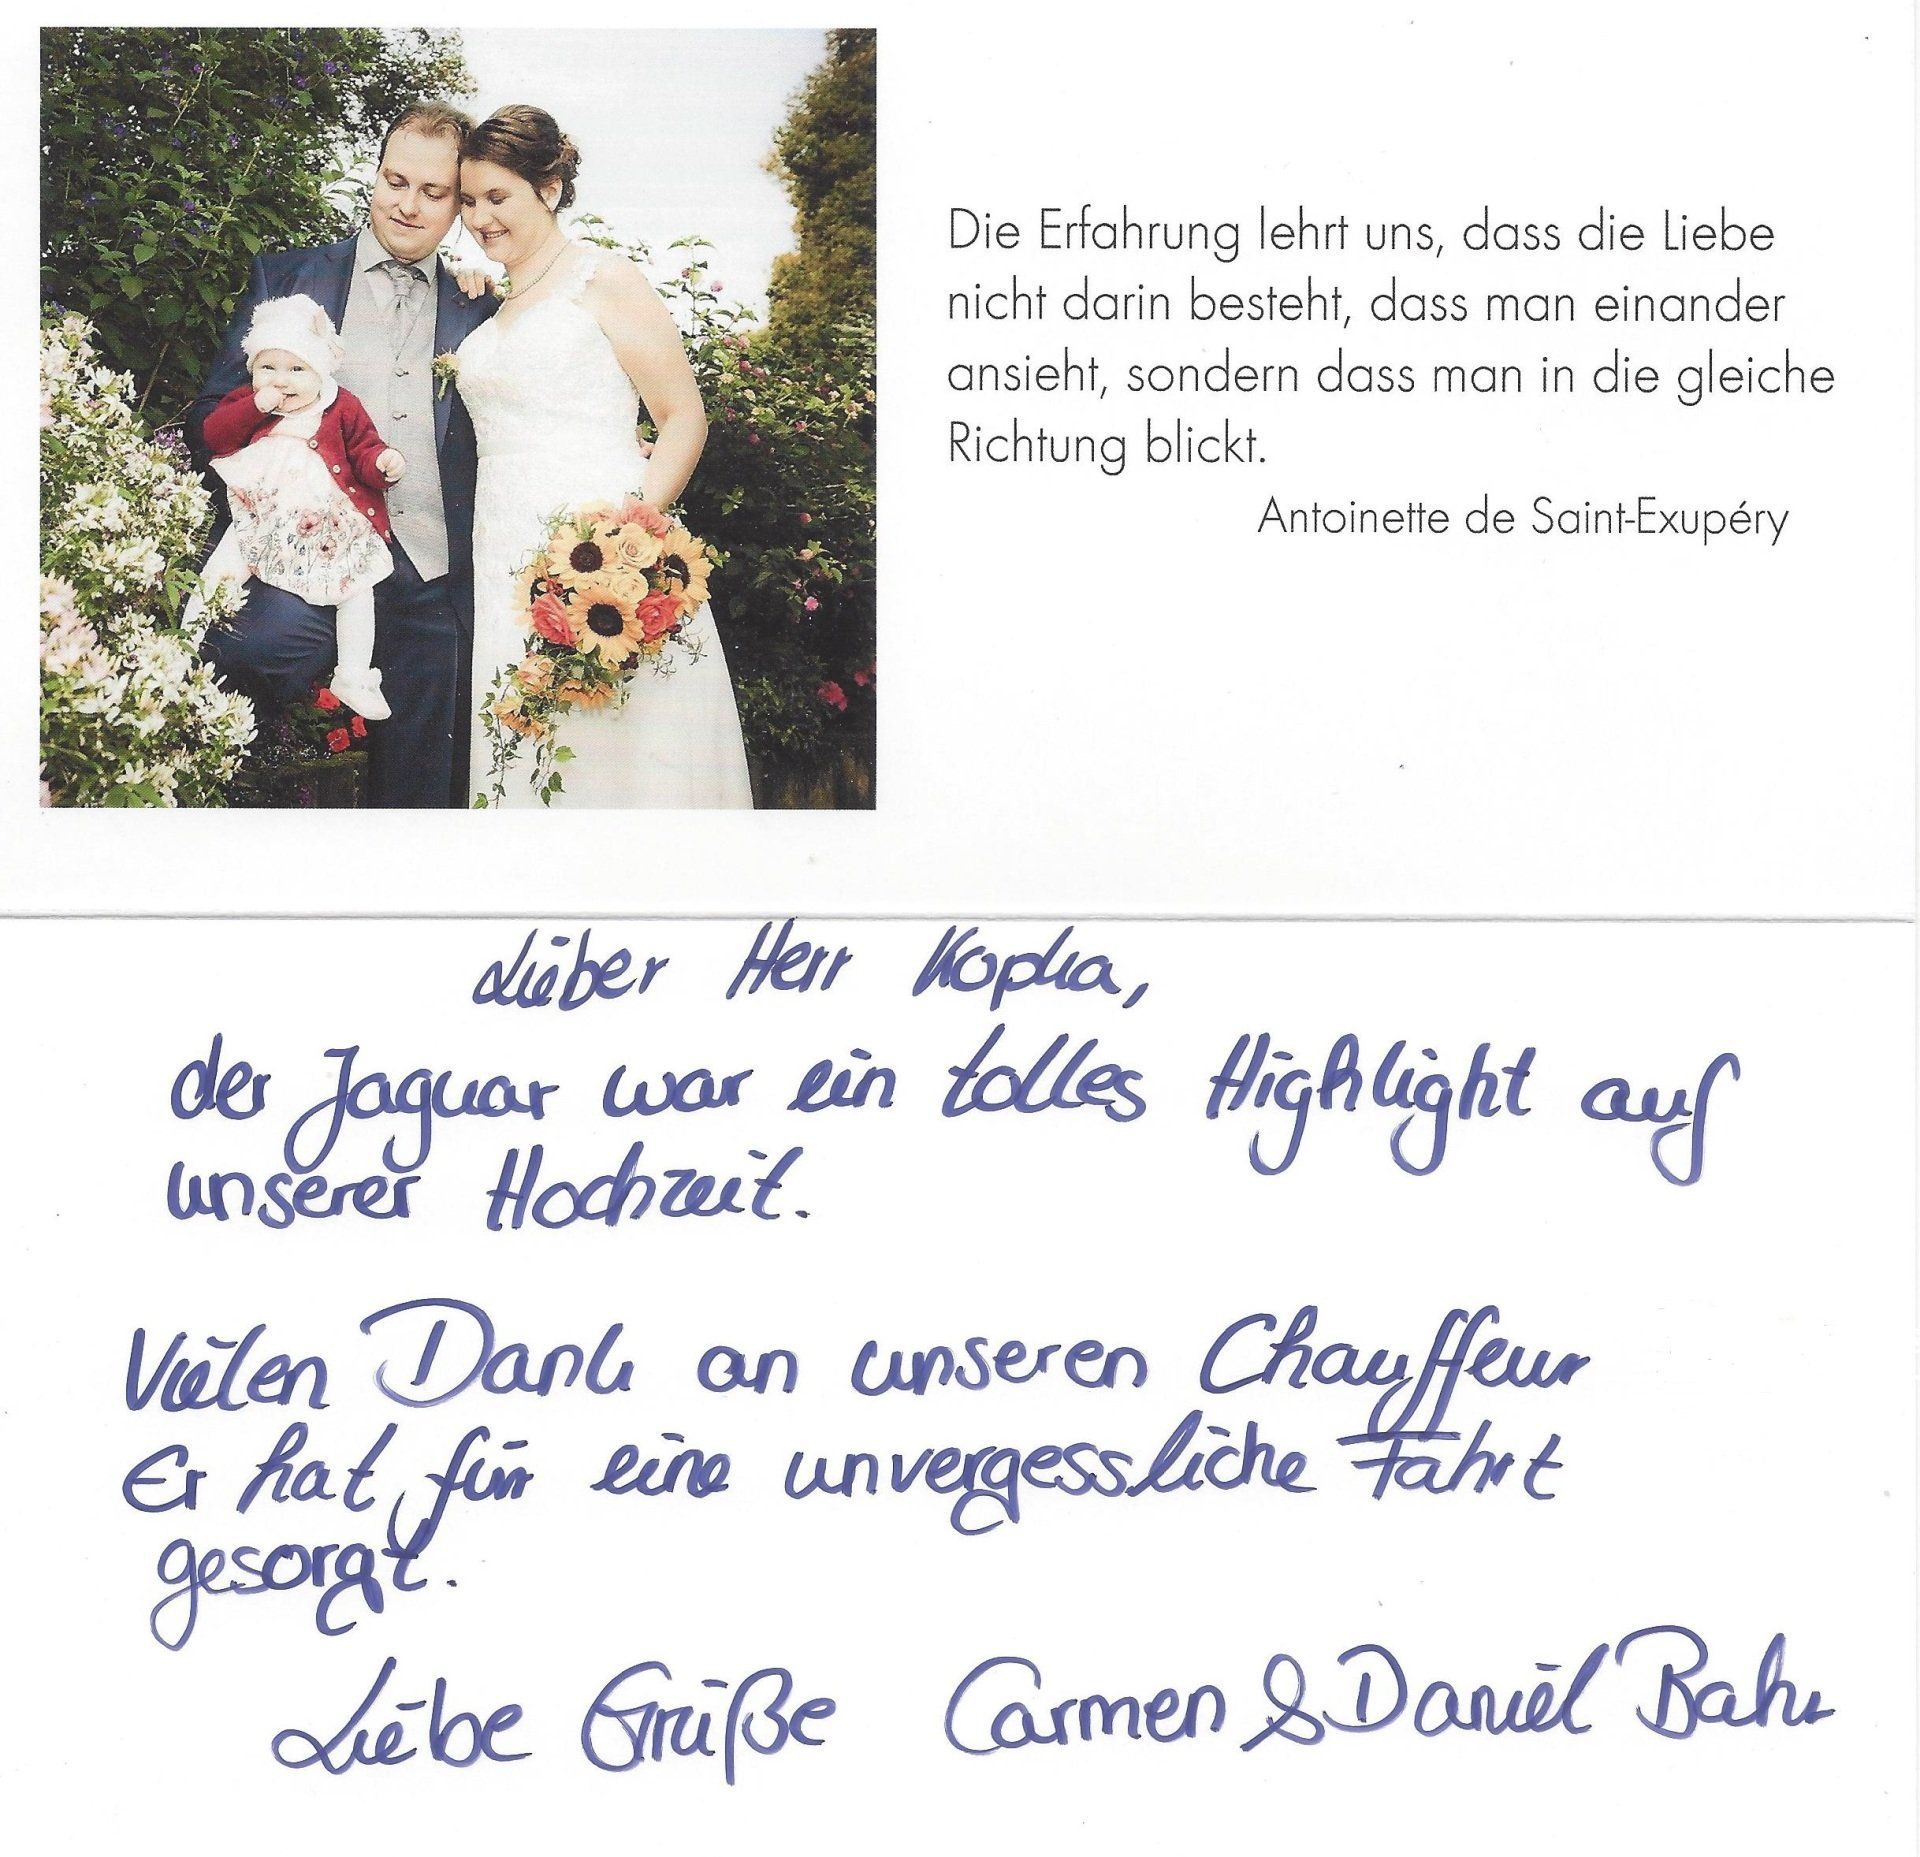 Die Erfahrung lehrt uns, dass die Liebe
nicht darin besteht, dass man einander
ansieht, sondern dass man in die gleiche
Richtung blickt.
Antoinette de Saint-Exupéry
Lieber Herr Kopka,
der Jaguar war ein tolles Highlight auf
unserer Hochzeit.
Vielen Dank an unseren Chauffeur
Er hat für eine unvergessliche Fahrt
gesorgt.
Liebe Grüße Carmen & Daniel Bahr